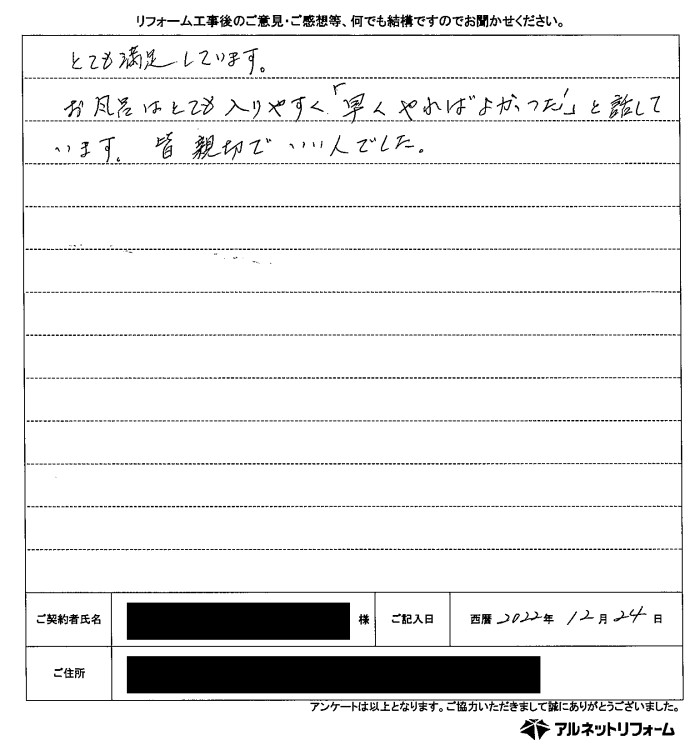 リフォーム工事後のご意見・ご感想等、何でも結構ですのでお聞かせください。
とても満足しています。
お風呂はとても入りやすく「早くやればよかった!」と話して
います。皆親切でいい人でした。
ご契約者氏名 様 ご記入日 西暦 2022年 12月 24日
ご住所
アンケートは以上となります。ご協力いただきまして誠にありがとうございました。
アルネットリフォーム